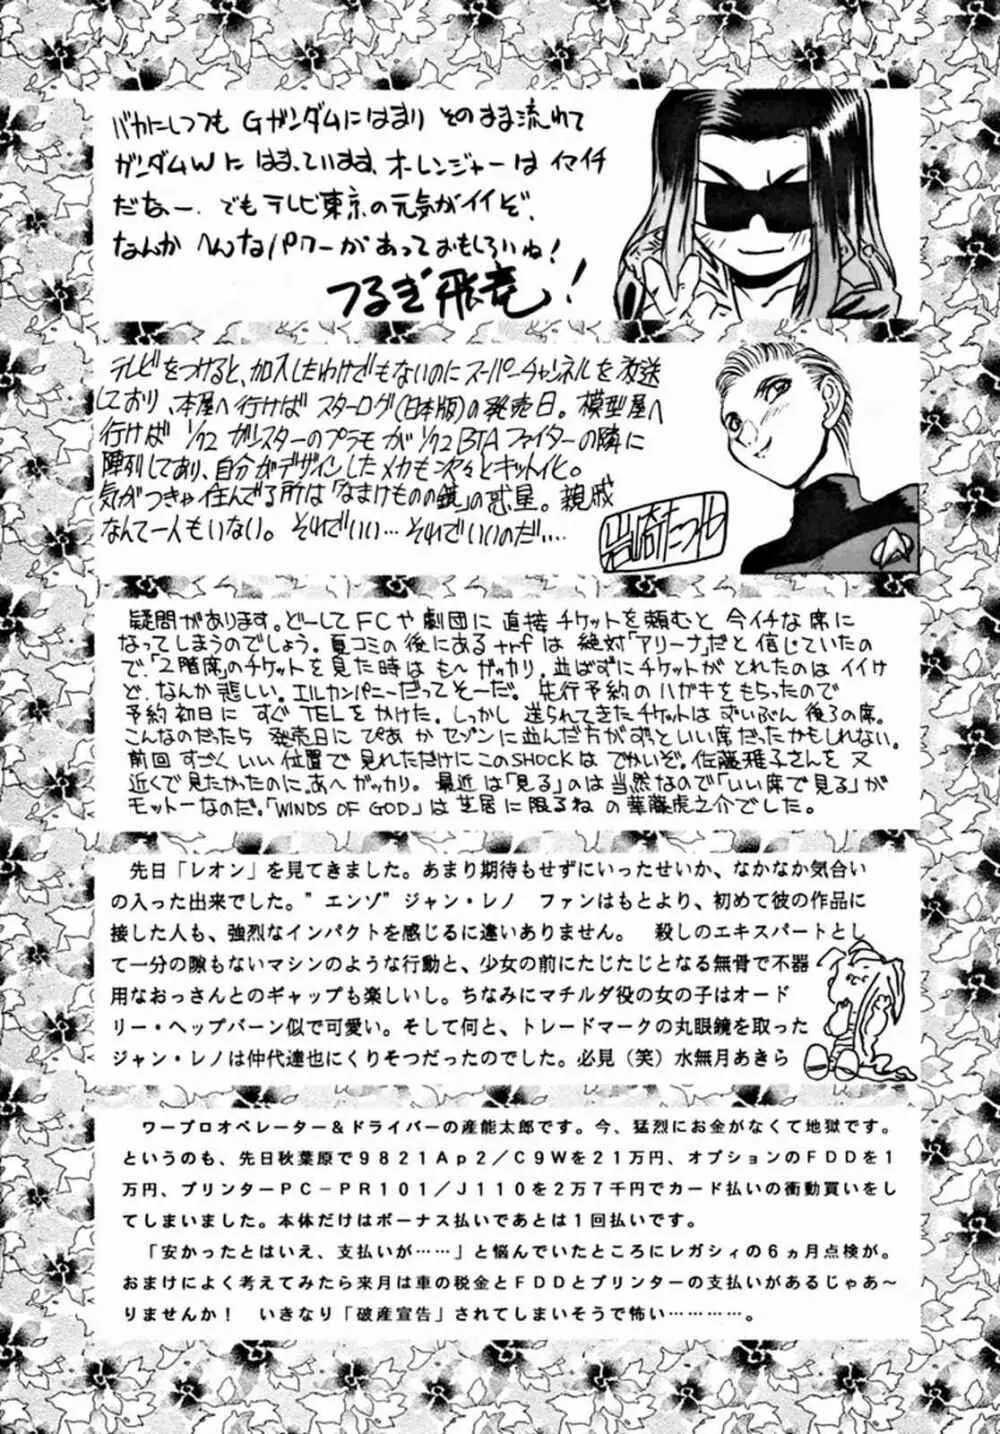 バカにしつつも Gガンダムにはまり そのまま流れて
ガンダムWに はまっています、オーレンジャーは イマイチ
だなー。でもテレビ東京の元気がイイぞ、
なんか へんなパワーがあっておもしろいね!
つるぎ飛竜!
テレビをつけると、加入したわけでもないのにスーパーチャンネルを放送
しており、本屋へ行けば スターログ(日本版)の発売日。模型屋へ
行けば 1/72 ガンスターのプラモが 1/72 BTAファイターの隣に
陣列してあり、自分がデザインしたメカも次々とキット化。
気がつきゃ住んでる所は「なまけものの鏡」の惑星。親戚
なんて一人もいない。それでいい…それでいいのだ‥‥
岩崎たつや
疑問があります。どーしてFCや劇団に 直接チケットを頼むと 今イチな席に
なってしまうのでしょう。夏コミの後にあるtrfは 絶対「アリーナ」だと信じていたの
で、「2階席」のチケットを見た時はも〜ガッカリ。並ばずにチケットがとれたのは イイけ
ど、なんか悲しい。エルカンパニーだってそ〜だ。先行予約のハガキをもらったので
予約初日に すぐ TELをかけた。しっかし 送られてきたチケットは ずいぶん後ろの席。
こんなのだったら 発売日に ぴあ か セゾンに並んだ方がずっといい席だったかもしれない。
前回 すごくいい位置で見れただけにこのSHOCKは でかいぞ。佐藤雅子さんを又
近くで見たかったのに。あ〜ガッカリ。最近は「見る」のは当然なので「いい席で見る」が
モットーなのだ。「WINDS OF GOD」は芝居に限るね の 華藤虎之介でした。
先日「レオン」を見てきました。あまり期待もせずにいったせいか、なかなか気合い
の入った出来でした。”エンゾ”ジャン・レノ　ファンはもとより、初めて彼の作品に
接した人も、強烈なインパクトを感じるに違いありません。　殺しのエキスパートとし
て一分の隙もないマシンのような行動と、少女の前にたじたじとなる無骨で不器
用なおっさんとのギャップも楽しいし。ちなみにマチルダ役の女の子はオード
リー・ヘップバーン似で可愛い。そして何と、トレードマークの丸眼鏡を取った
ジャン・レノは仲代達也にくりそつだったのでした。必見（笑）水無月あきら
ワープロオペレーター＆ドライバーの産能太郎です。今、猛烈にお金がなくて地獄です。
というのも、先日秋葉原で９８２１Ａｐ２／Ｃ９Ｗを２１万円、オプションのＦＤＤを１
万円、プリンターＰＣ－ＰＲ１０１／Ｊ１１０を２万７千円でカード払いの衝動買いをし
てしまいました。本体だけはボーナス払いであとは１回払いです。
「安かったとはいえ、支払いが……」と悩んでいたところにレガシィの６ヵ月点検が。
おまけによく考えてみたら来月は車の税金とＦＤＤとプリンターの支払いがあるじゃあ〜
りませんか！　いきなり「破産宣告」されてしまいそうで怖い…………。